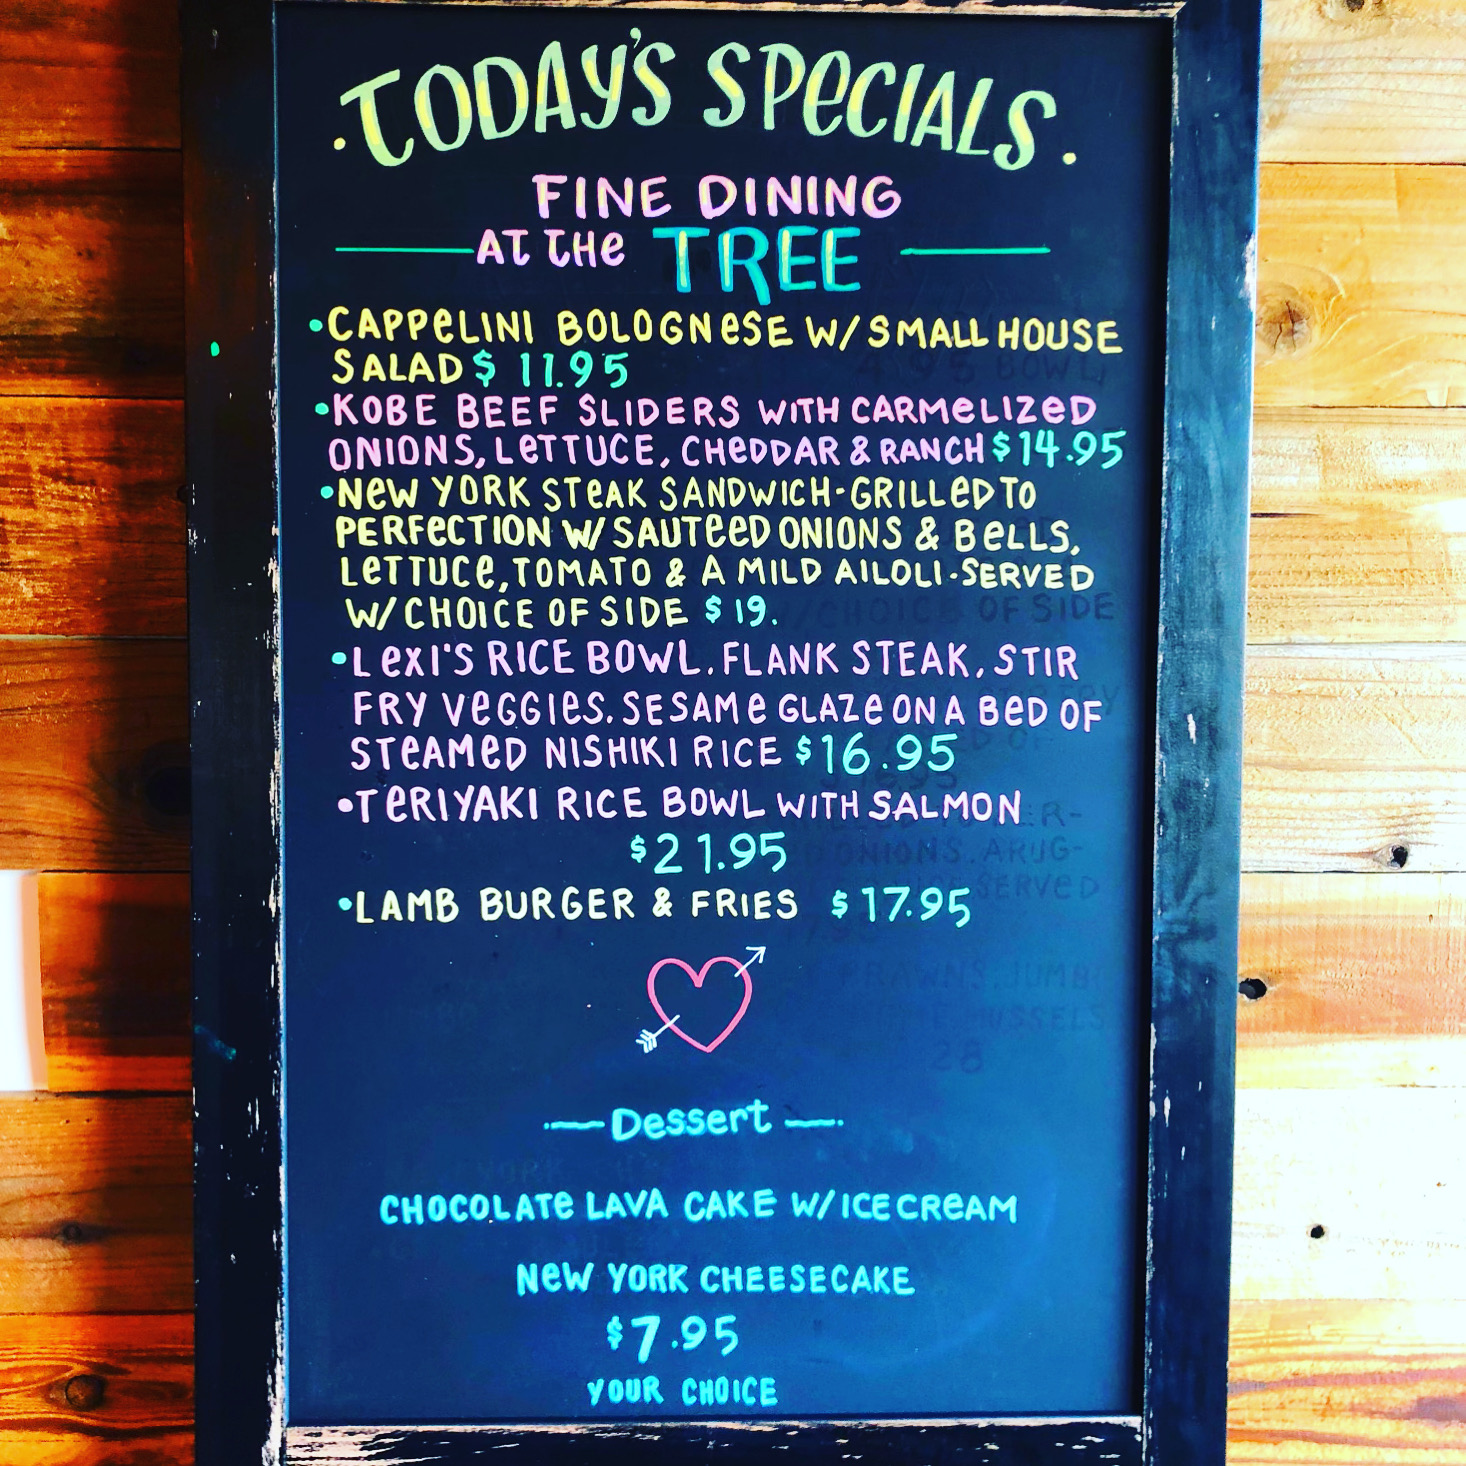 ·TODAY'S SPECIALS·
FINE DINING
AT the TREE
•CAPPELINI BOLOGNESE W/SMALL HOUSE
SALAD $ 11.95
•KOBE BEEF SLIDERS WITH CARMELIZED
ONIONS, LETTUCE, CHEDDAR & RANCH $14.95
•NEW YORK STEAK SANDWICH-GRILLED TO
PERFECTION W/ SAUTEED ONIONS & BELLS,
LETTUCE, TOMATO & A MILD AILOLI-SERVED
W/CHOICE OF SIDE $19.
•LEXI'S RICE BOWL. FLANK STEAK, STIR
FRY VEGGIES. SESAME GLAZE ON A BED OF
STEAMED NISHIKI RICE $16.95
•TERIYAKI RICE BOWL WITH SALMON
$21.95
•LAMB BURGER & FRIES $17.95
Dessert
CHOCOLATE LAVA CAKE W/ICE CREAM
NEW YORK CHEESECAKE
$7.95
YOUR CHOICE